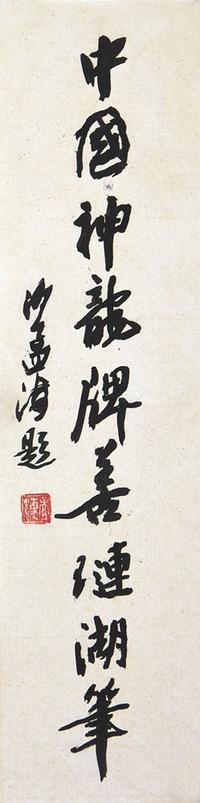 中國神龍牌善璉湖筆
沙孟海題